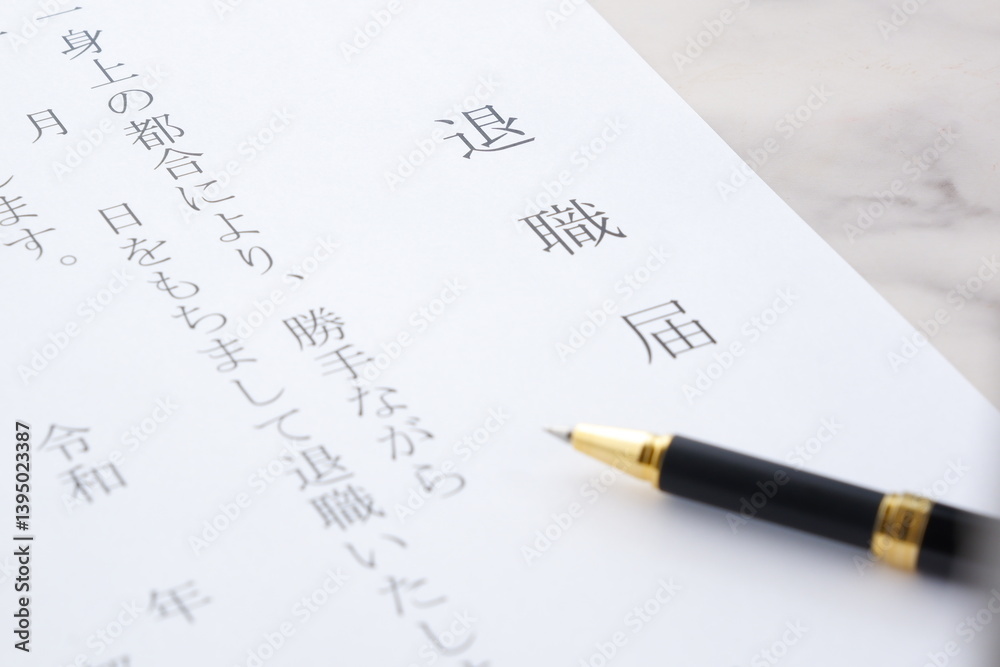 退職届
一身上の都合により、勝手ながら
月 日をもちまして退職いたし
ます。
令和 年
Adobe Stock | #1395023387